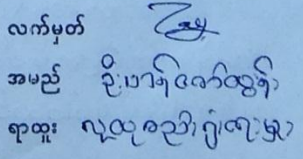 လက်မှတ်
အမည် ဦးဟန်ဇော်ထွန်း
ရာထူး လူထုစည်းရုံးရေးမှူး